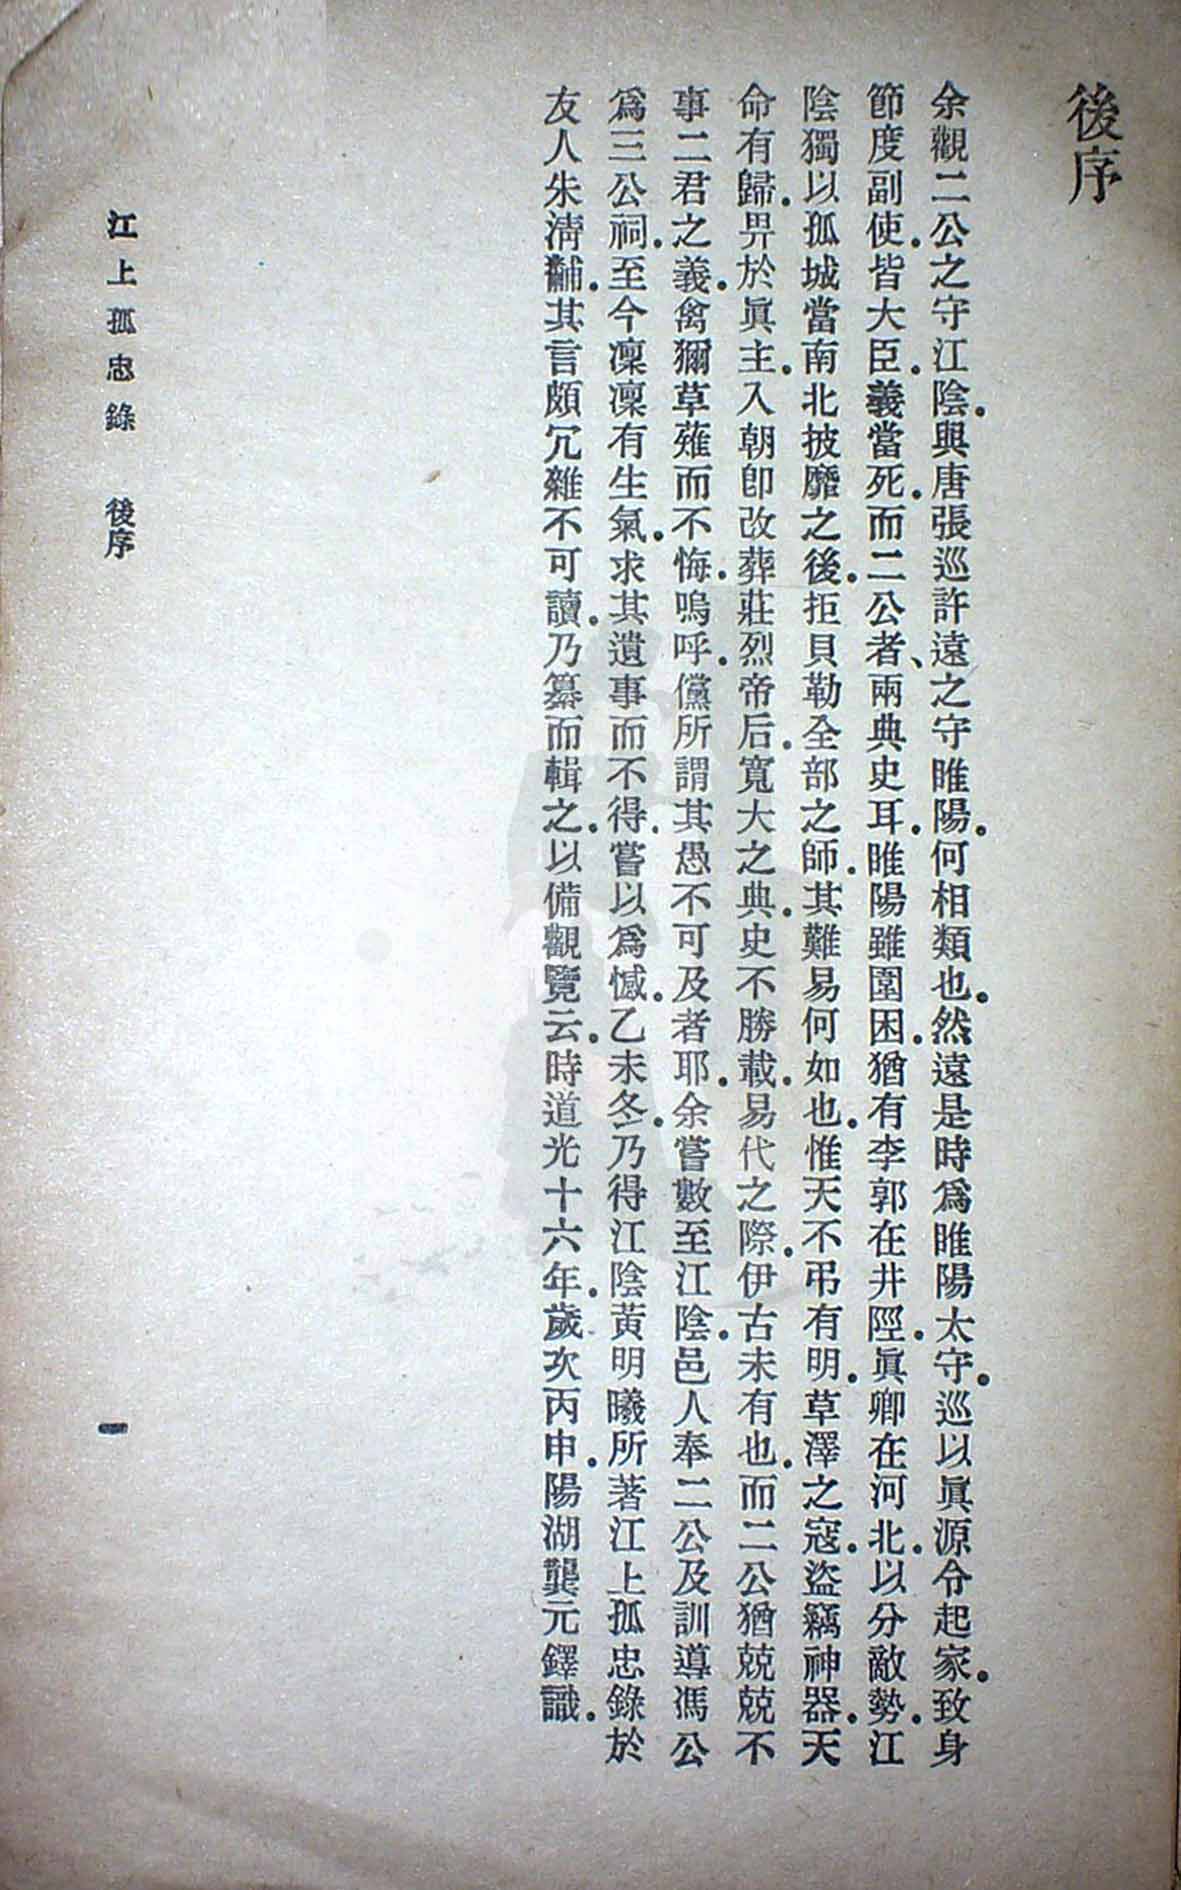 後序
余觀二公之守江陰.與唐張巡許遠之守睢陽.何相類也.然遠是時爲睢陽太守.巡以眞源令起家.致身
節度副使.皆大臣.義當死.而二公者、兩典史耳.睢陽雖圍困.猶有李郭在井陘.眞卿在河北.以分敵勢.江
陰獨以孤城當南北披靡之後.拒貝勒全部之師.其難易何如也.惟天不弔有明.草澤之寇.盜竊神器.天
命有歸.畀於眞主.入朝卽改葬莊烈帝后.寬大之典.史不勝載.易代之際.伊古未有也.而二公猶兢兢不
事二君之義.禽獮草薙而不悔.嗚呼.儻所謂其愚不可及者耶.余嘗數至江陰.邑人奉二公及訓導馮公
爲三公祠.至今凜凜有生氣.求其遺事而不得.嘗以爲憾.乙未冬.乃得江陰黃明曦所著江上孤忠錄於
友人朱淸黼.其言頗冗雜不可讀.乃纂而輯之.以備觀覽云.時道光十六年.歲次丙申.陽湖龔元鐸識.
江上孤忠錄 後序
一